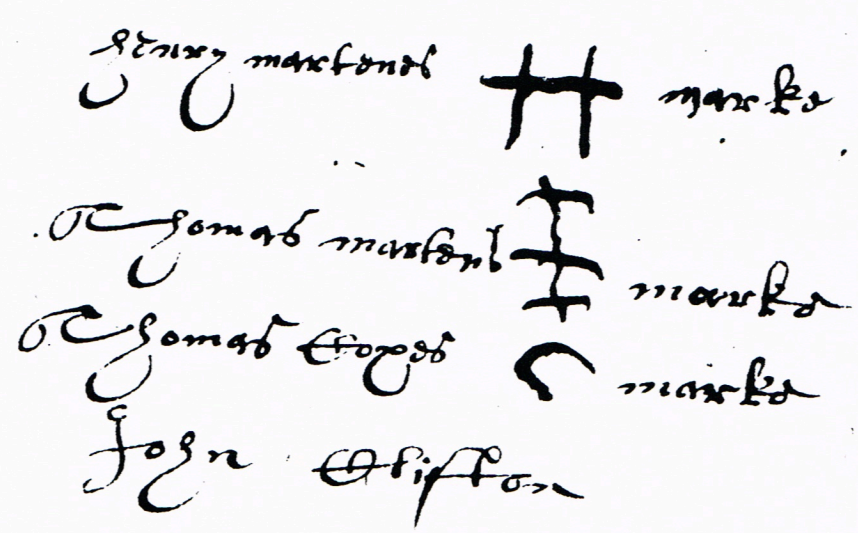 Henry martenes H marke
Thomas martens marke
Thomas Copes C marke
John Clifton